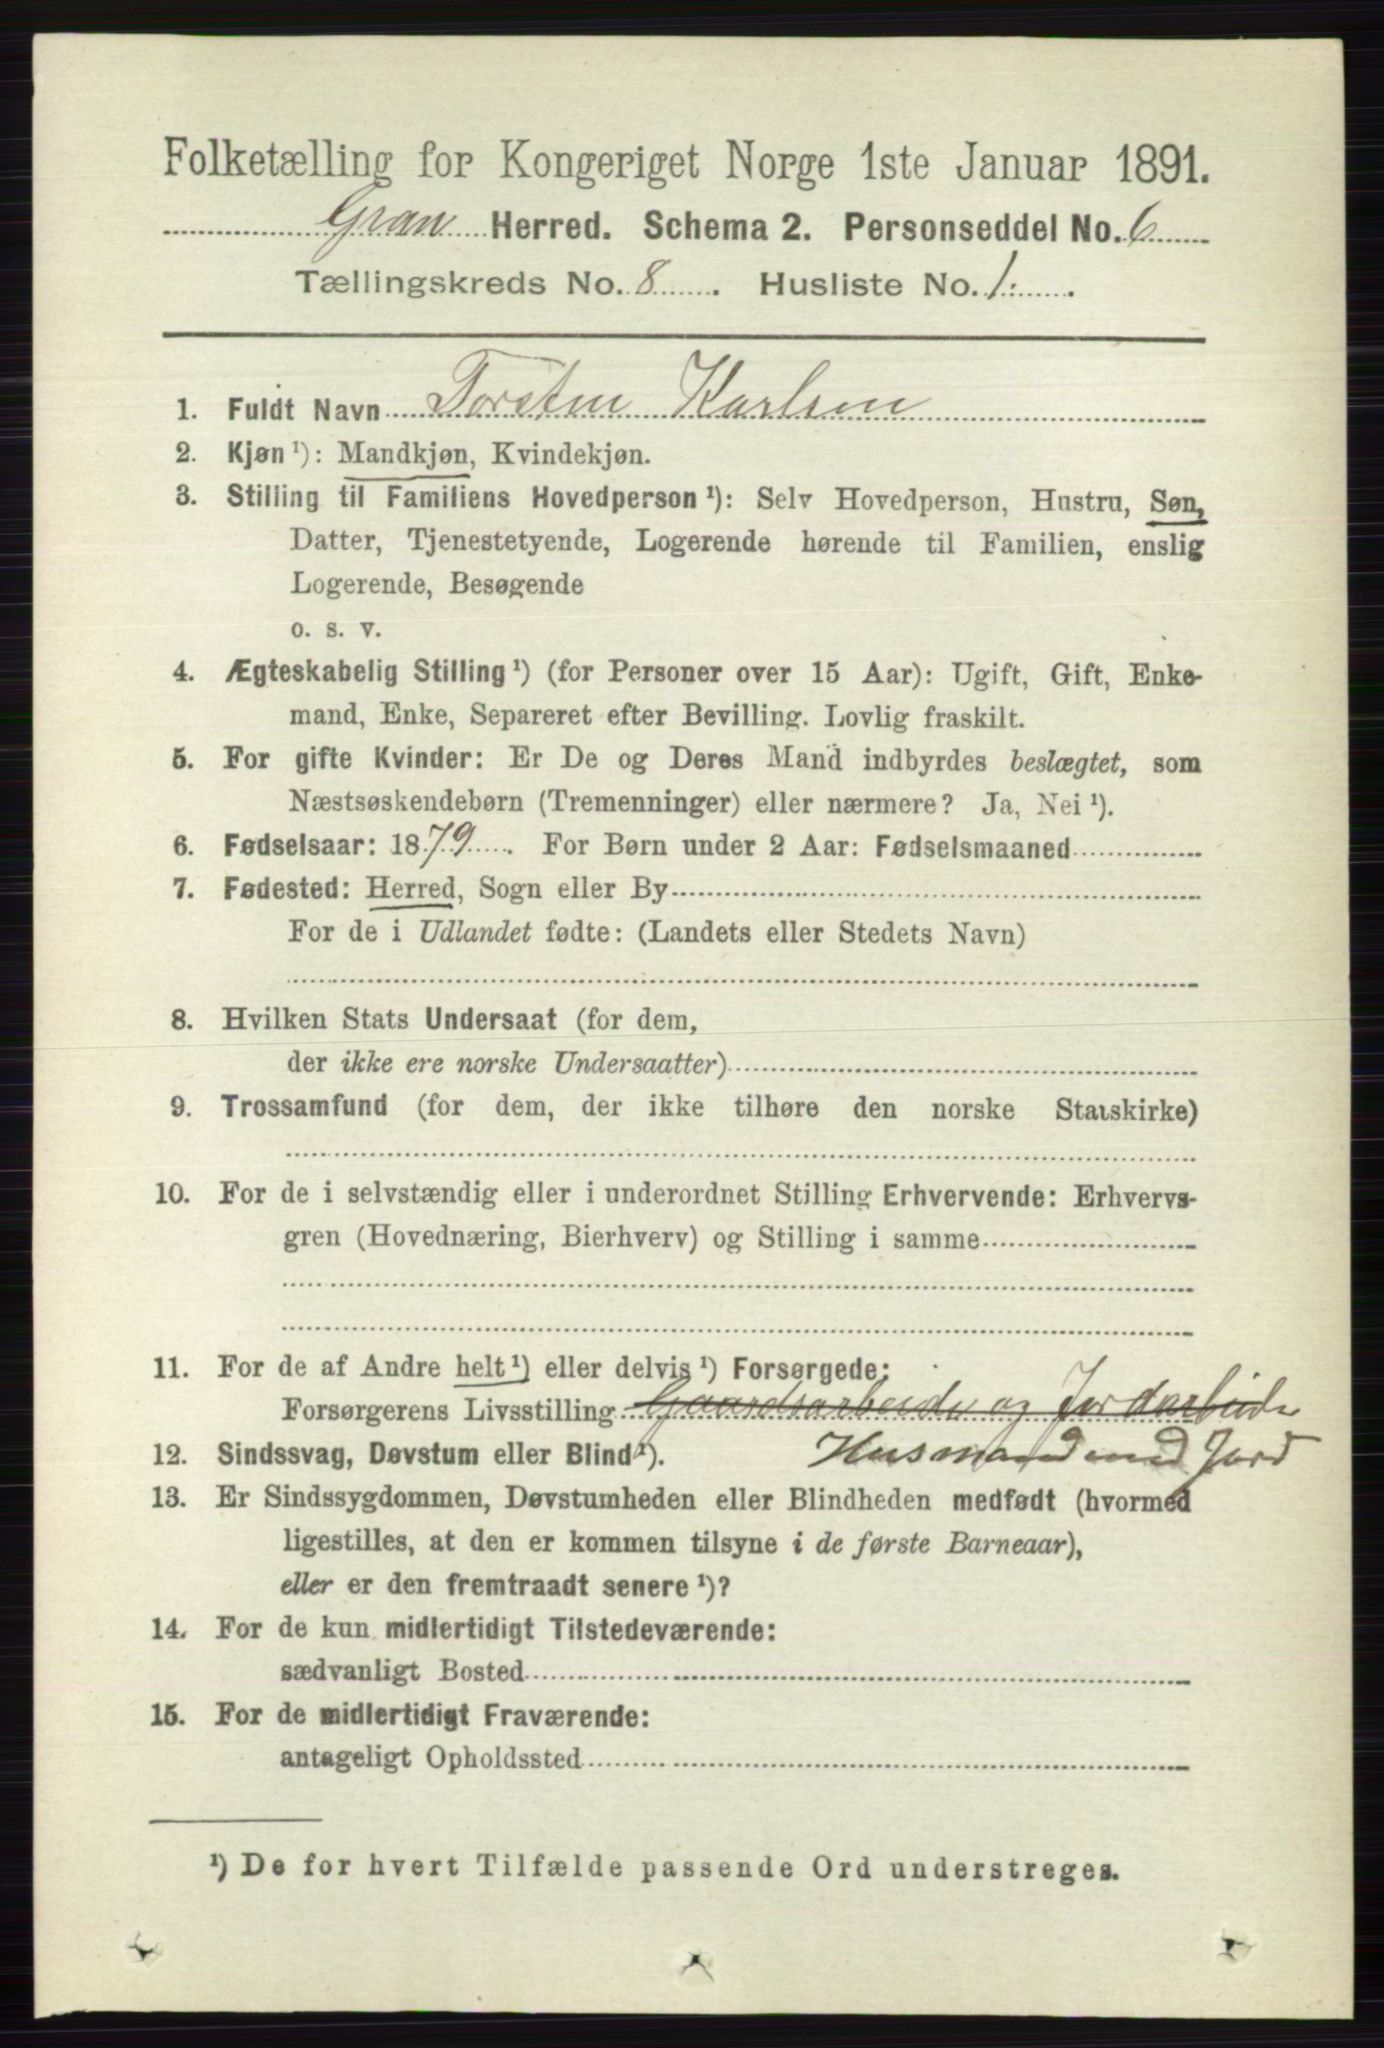 Folketælling for Kongeriget Norge 1ste Januar 1891.
Gran Herred. Schema 2. Personseddel No. 6
Tællingskreds No. 8. Husliste No. 1.
1. Fuldt Navn Torsten Karlsen
2. Kjøn ¹): Mandkjøn, Kvindekjøn.
3. Stilling til Familiens Hovedperson ¹): Selv Hovedperson, Hustru, Søn,
Datter, Tjenestetyende, Logerende hørende til Familien, enslig
Logerende, Besøgende
o. s. v.
4. Ægteskabelig Stilling ¹) (for Personer over 15 Aar): Ugift, Gift, Enke-
mand, Enke, Separeret efter Bevilling. Lovlig fraskilt.
5. For gifte Kvinder: Er De og Deres Mand indbyrdes beslægtet, som
Næstsøskendebørn (Tremenninger) eller nærmere? Ja, Nei ¹).
6. Fødselsaar: 1879. For Børn under 2 Aar: Fødselsmaaned
7. Fødested: Herred, Sogn eller By
For de i Udlandet fødte: (Landets eller Stedets Navn)
8. Hvilken Stats Undersaat (for dem,
der ikke ere norske Undersaatter)
9. Trossamfund (for dem, der ikke tilhøre den norske Statskirke)
10. For de i selvstændig eller i underordnet Stilling Erhvervende: Erhvervs-
gren (Hovednæring, Bierhverv) og Stilling i samme
11. For de af Andre helt ¹) eller delvis ¹) Forsørgede:
Forsørgerens Livsstilling Gaardsarbeide og Jordarbeide
12. Sindssvag, Døvstum eller Blind ¹). Husmand med Jord
13. Er Sindssygdommen, Døvstumheden eller Blindheden medfødt (hvormed
ligestilles, at den er kommen tilsyne i de første Barneaar),
eller er den fremtraadt senere ¹)?
14. For de kun midlertidigt Tilstedeværende:
sædvanligt Bosted
15. For de midlertidigt Fraværende:
antageligt Opholdssted
¹) De for hvert Tilfælde passende Ord understreges.